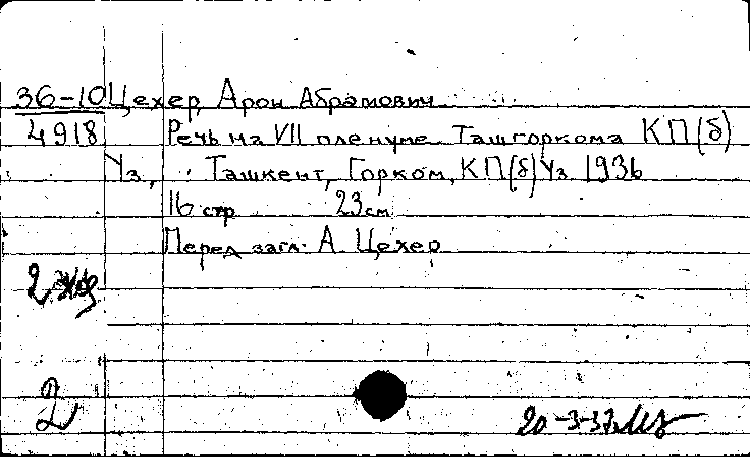 36-10 Цехер, Арон Абрамович
4918 Речь на VII пленуме Ташгоркома КП(б)
Уз, Ташкент, Горком, КП(б)Уз 1936
16 стр 23 см
Перед загл: А. Цехер
2
2
20-3-37